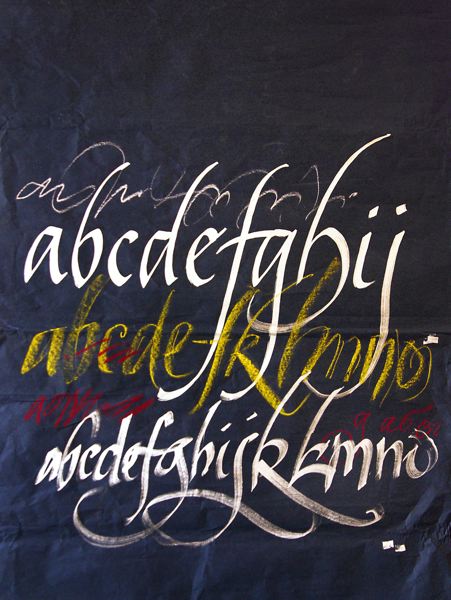 abcdefghij
abcdefklmno
abcdefghijklmno